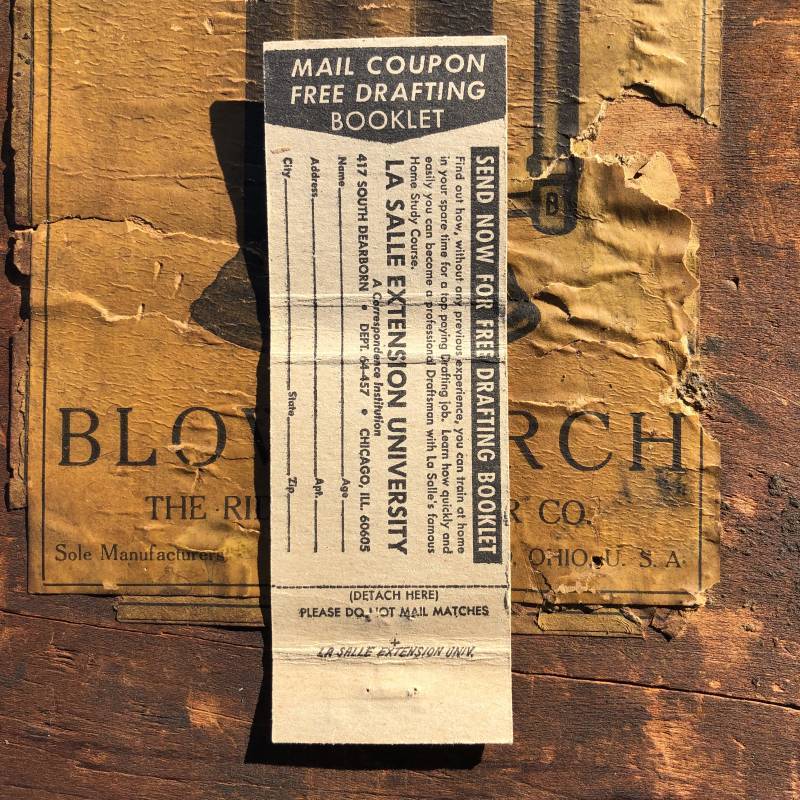 MAIL COUPON
FREE DRAFTING
BOOKLET
SEND NOW FOR FREE DRAFTING BOOKLET
Find out how, without any previous experience, you can train at home
in your spare time for a top paying Drafting job. Learn how quickly and
easily you can become a professional Draftsman with La Salle's famous
Home Study Course.
LA SALLE EXTENSION UNIVERSITY
A Correspondence Institution
417 SOUTH DEARBORN • DEPT. 64-457 • CHICAGO, ILL. 60605
Name Age
Address Apt.
City State Zip
(DETACH HERE)
PLEASE DO NOT MAIL MATCHES
+
LA SALLE EXTENSION UNIV.
B
THE CO.
Sole Manufacturers OHIO, U. S. A.